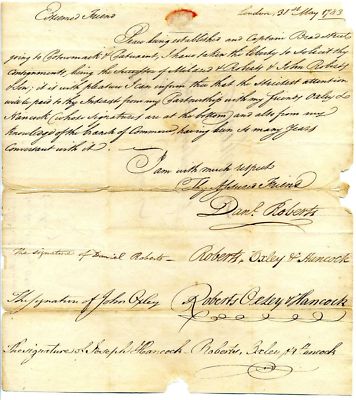 Esteemed Friend
London, 31st May 1783
Peace being established and Captain Bradstreet
going to Potowmack & Patuxent, I have taken the liberty to solicit thy
consignments, being the successor of Mildred & Roberts & John Roberts
& Son; it is with pleasure I can inform thee that the strictest attention
will be paid to thy Interest from my Partnership with my friends Oxley &
Hancock (whose signatures are at the bottom) and also from my
knowledge of the branch of Commerce having been so many years
conversant with it.
I am with much respect
Thy Assured Friend
Danl. Roberts
The signature of Daniel Roberts — Roberts, Oxley & Hancock
The Signature of John Oxley Roberts Oxley & Hancock
The signature of Joseph Hancock — Roberts, Oxley & Hancock